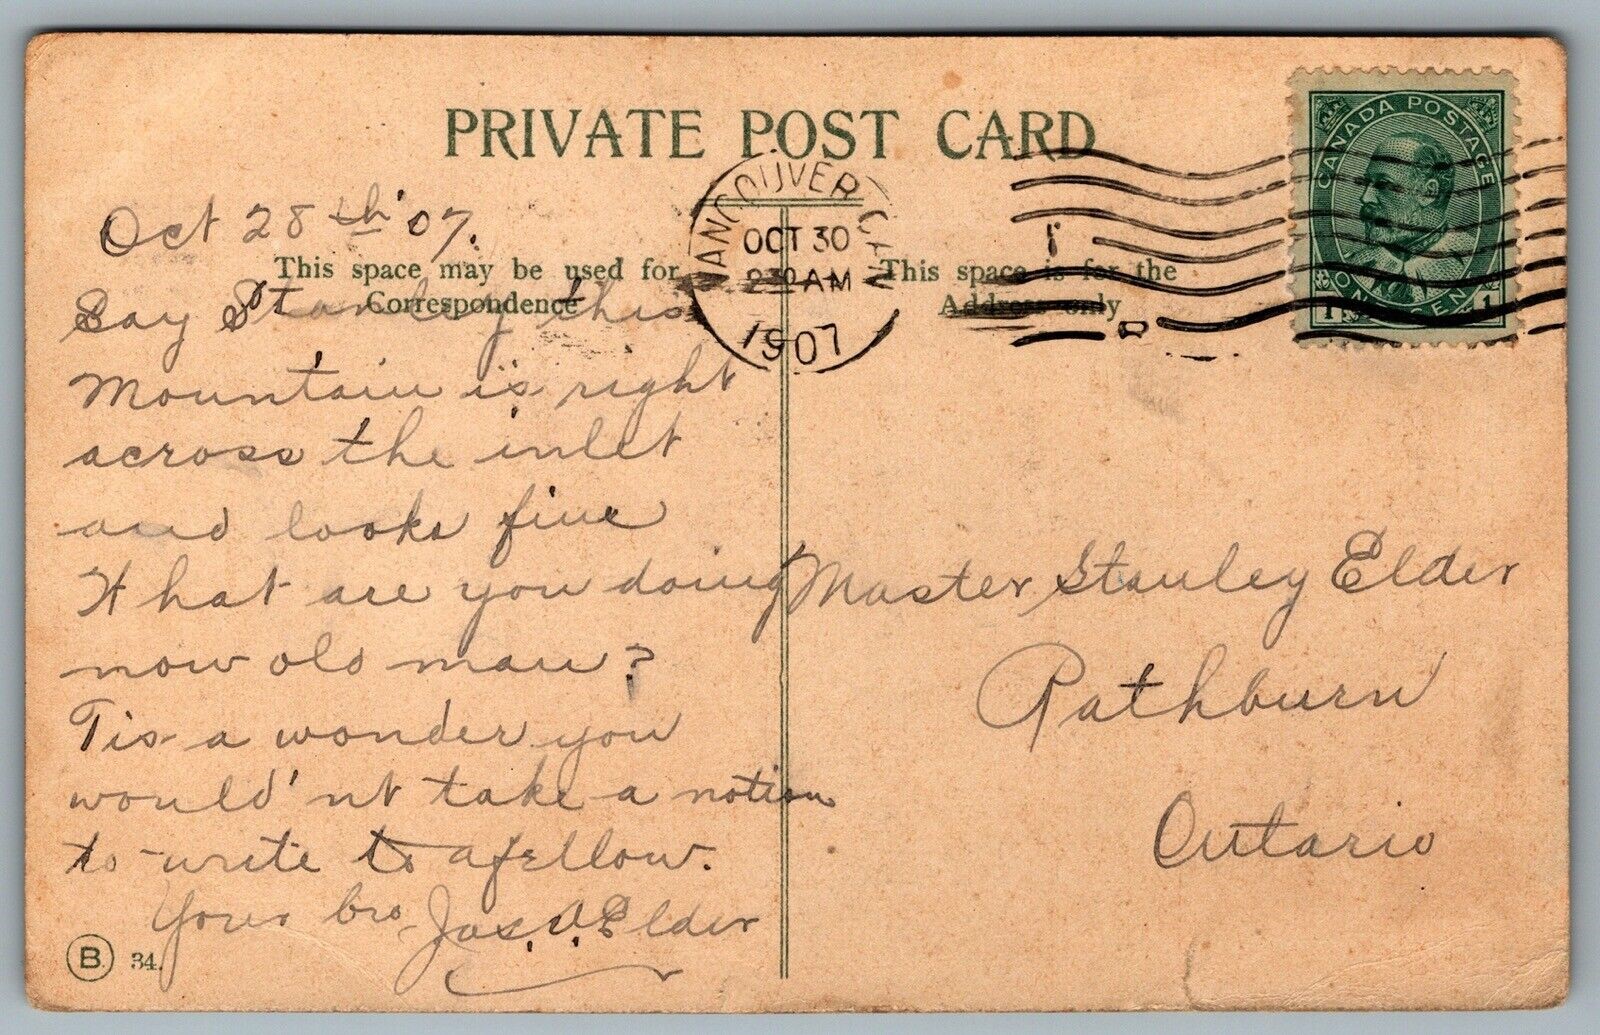 PRIVATE POST CARD
CANADA POSTAGE
ONE CENT
1 1
VANCOUVER CAN
OCT 30
230 AM
1907
Oct 28th '07.
This space may be used for
Correspondence
This space is for the
Address only
Say Stanley this
Mountain is right
across the inlet
and looks fine
What are you doing
now old man?
Tis a wonder you
would'nt take a notion
to write to a fellow.
Your bro
Jas. A. Elder
Master Stanley Elder
Rathburn
Ontario
B. 34.